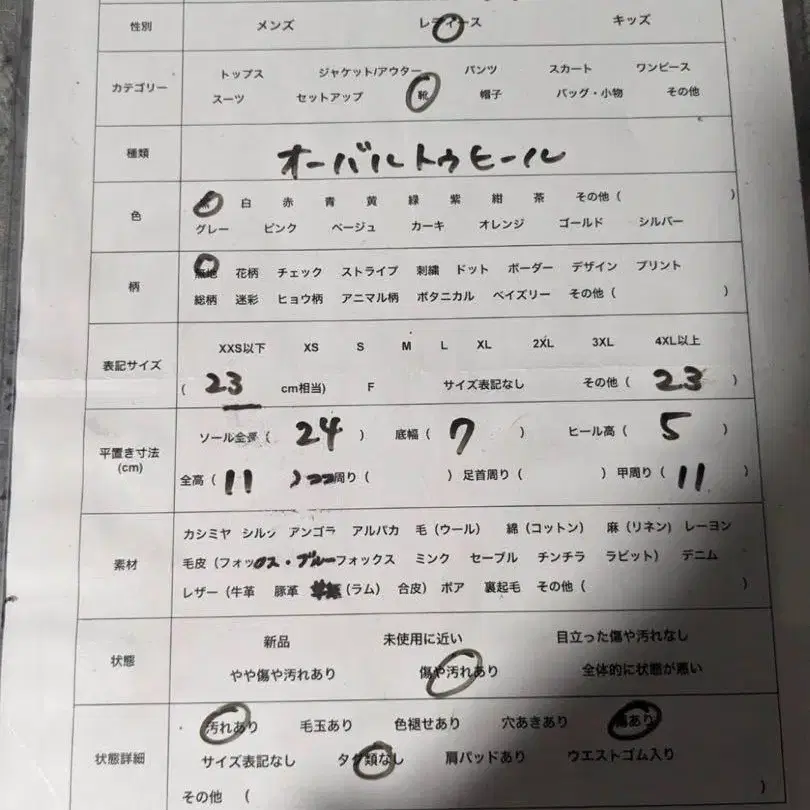 性別 メンズ レディース キッズ
カテゴリー
トップス ジャケット/アウター パンツ スカート ワンピース
スーツ セットアップ 靴 帽子 バッグ・小物 その他
種類 オーバルトゥヒール
色
黒 白 赤 青 黄 緑 紫 紺 茶 その他( )
グレー ピンク ベージュ カーキ オレンジ ゴールド シルバー
柄
無地 花柄 チェック ストライプ 刺繍 ドット ボーダー デザイン プリント
総柄 迷彩 ヒョウ柄 アニマル柄 ボタニカル ペイズリー その他( )
表記サイズ
XXS以下 XS S M L XL 2XL 3XL 4XL以上
( 23 cm相当) F サイズ表記なし その他( 23 )
平置き寸法
(cm)
ソール全長( 24 ) 底幅( 7 ) ヒール高( 5 )
全高( 11 ) 周り( ) 足首周り( ) 甲周り( 11 )
素材
カシミヤ シルク アンゴラ アルパカ 毛(ウール) 綿(コットン) 麻(リネン) レーヨン
毛皮(フォックス・ブルーフォックス ミンク セーブル チンチラ ラビット) デニム
レザー(牛革 豚革 (ラム) 合皮) ボア 裏起毛 その他( )
状態
新品 未使用に近い 目立った傷や汚れなし
やや傷や汚れあり 傷や汚れあり 全体的に状態が悪い
状態詳細
汚れあり 毛玉あり 色褪せあり 穴あきあり 傷あり
サイズ表記なし タグ類なし 肩パッドあり ウエストゴム入り
その他 ( )